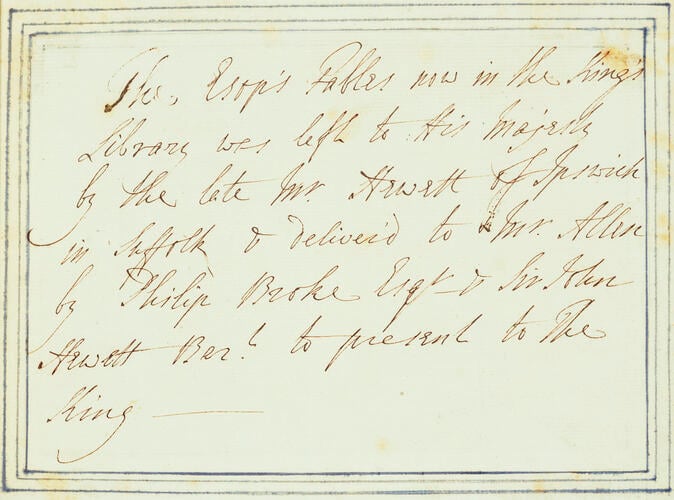 The, Esop's Fables now in the King's
Library was left to His Majesty
by the late Mr. Hewett of Ipswich
in Suffolk & deliver'd to Mr. Allen
by Philip Broke Esqr. & Sir John
Hewett Bar.t to present to The
King —